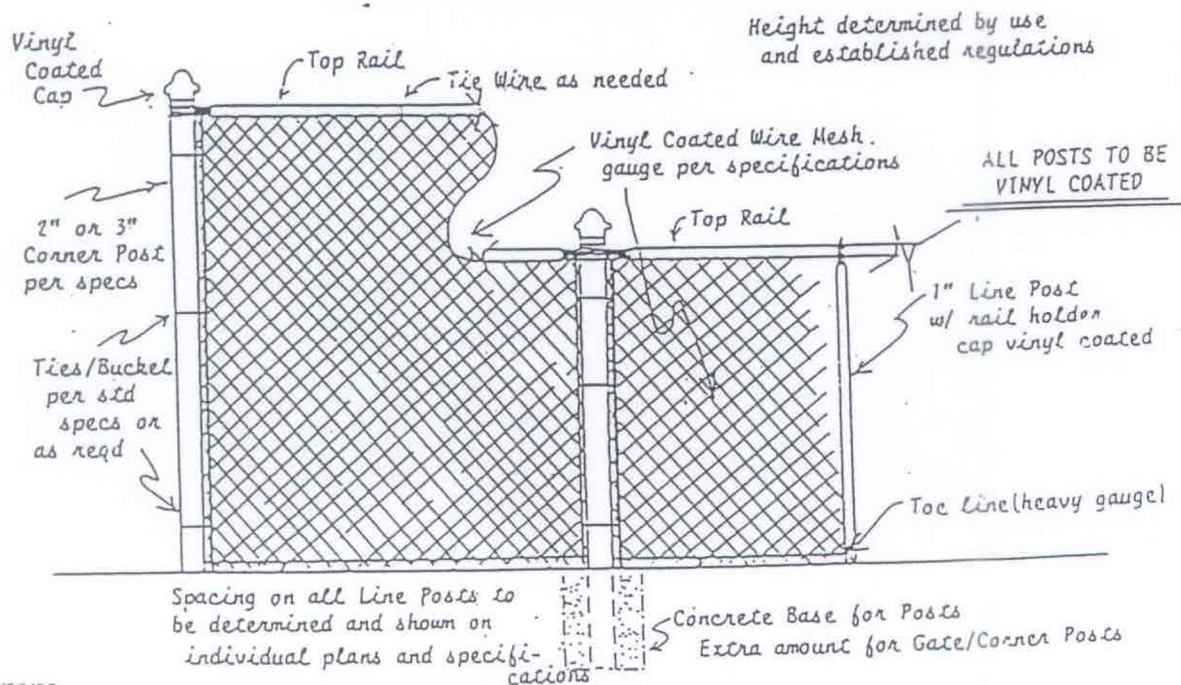 Height determined by use
and established regulations
Vinyl
Coated
Cap
Top Rail
Tie Wire as needed
Vinyl Coated Wire Mesh.
gauge per specifications
ALL POSTS TO BE
VINYL COATED
2" or 3"
Corner Post
per specs
Top Rail
1" Line Post
w/ rail holder
cap vinyl coated
Ties/Buckel
per std
specs or
as reqd
Toe line(heavy gauge)
Spacing on all Line Posts to
be determined and shown on
individual plans and specifi-
cations
Concrete Base for Posts
Extra amount for Gate/Corner Posts